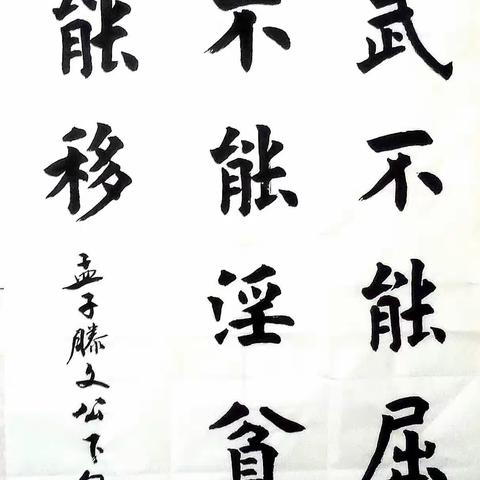 武不能屈
不能淫貧
能移
孟子滕文公下